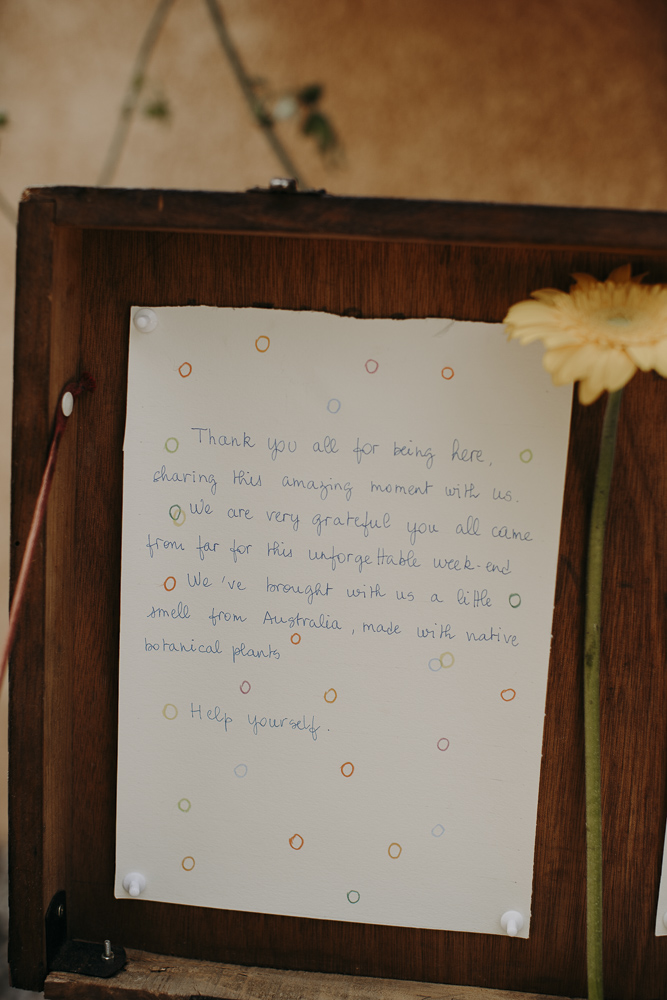 Thank you all for being here,
sharing this amazing moment with us.
We are very grateful you all came
from far for this unforgettable week-end
We've brought with us a little
smell from Australia, made with native
botanical plants
Help yourself.